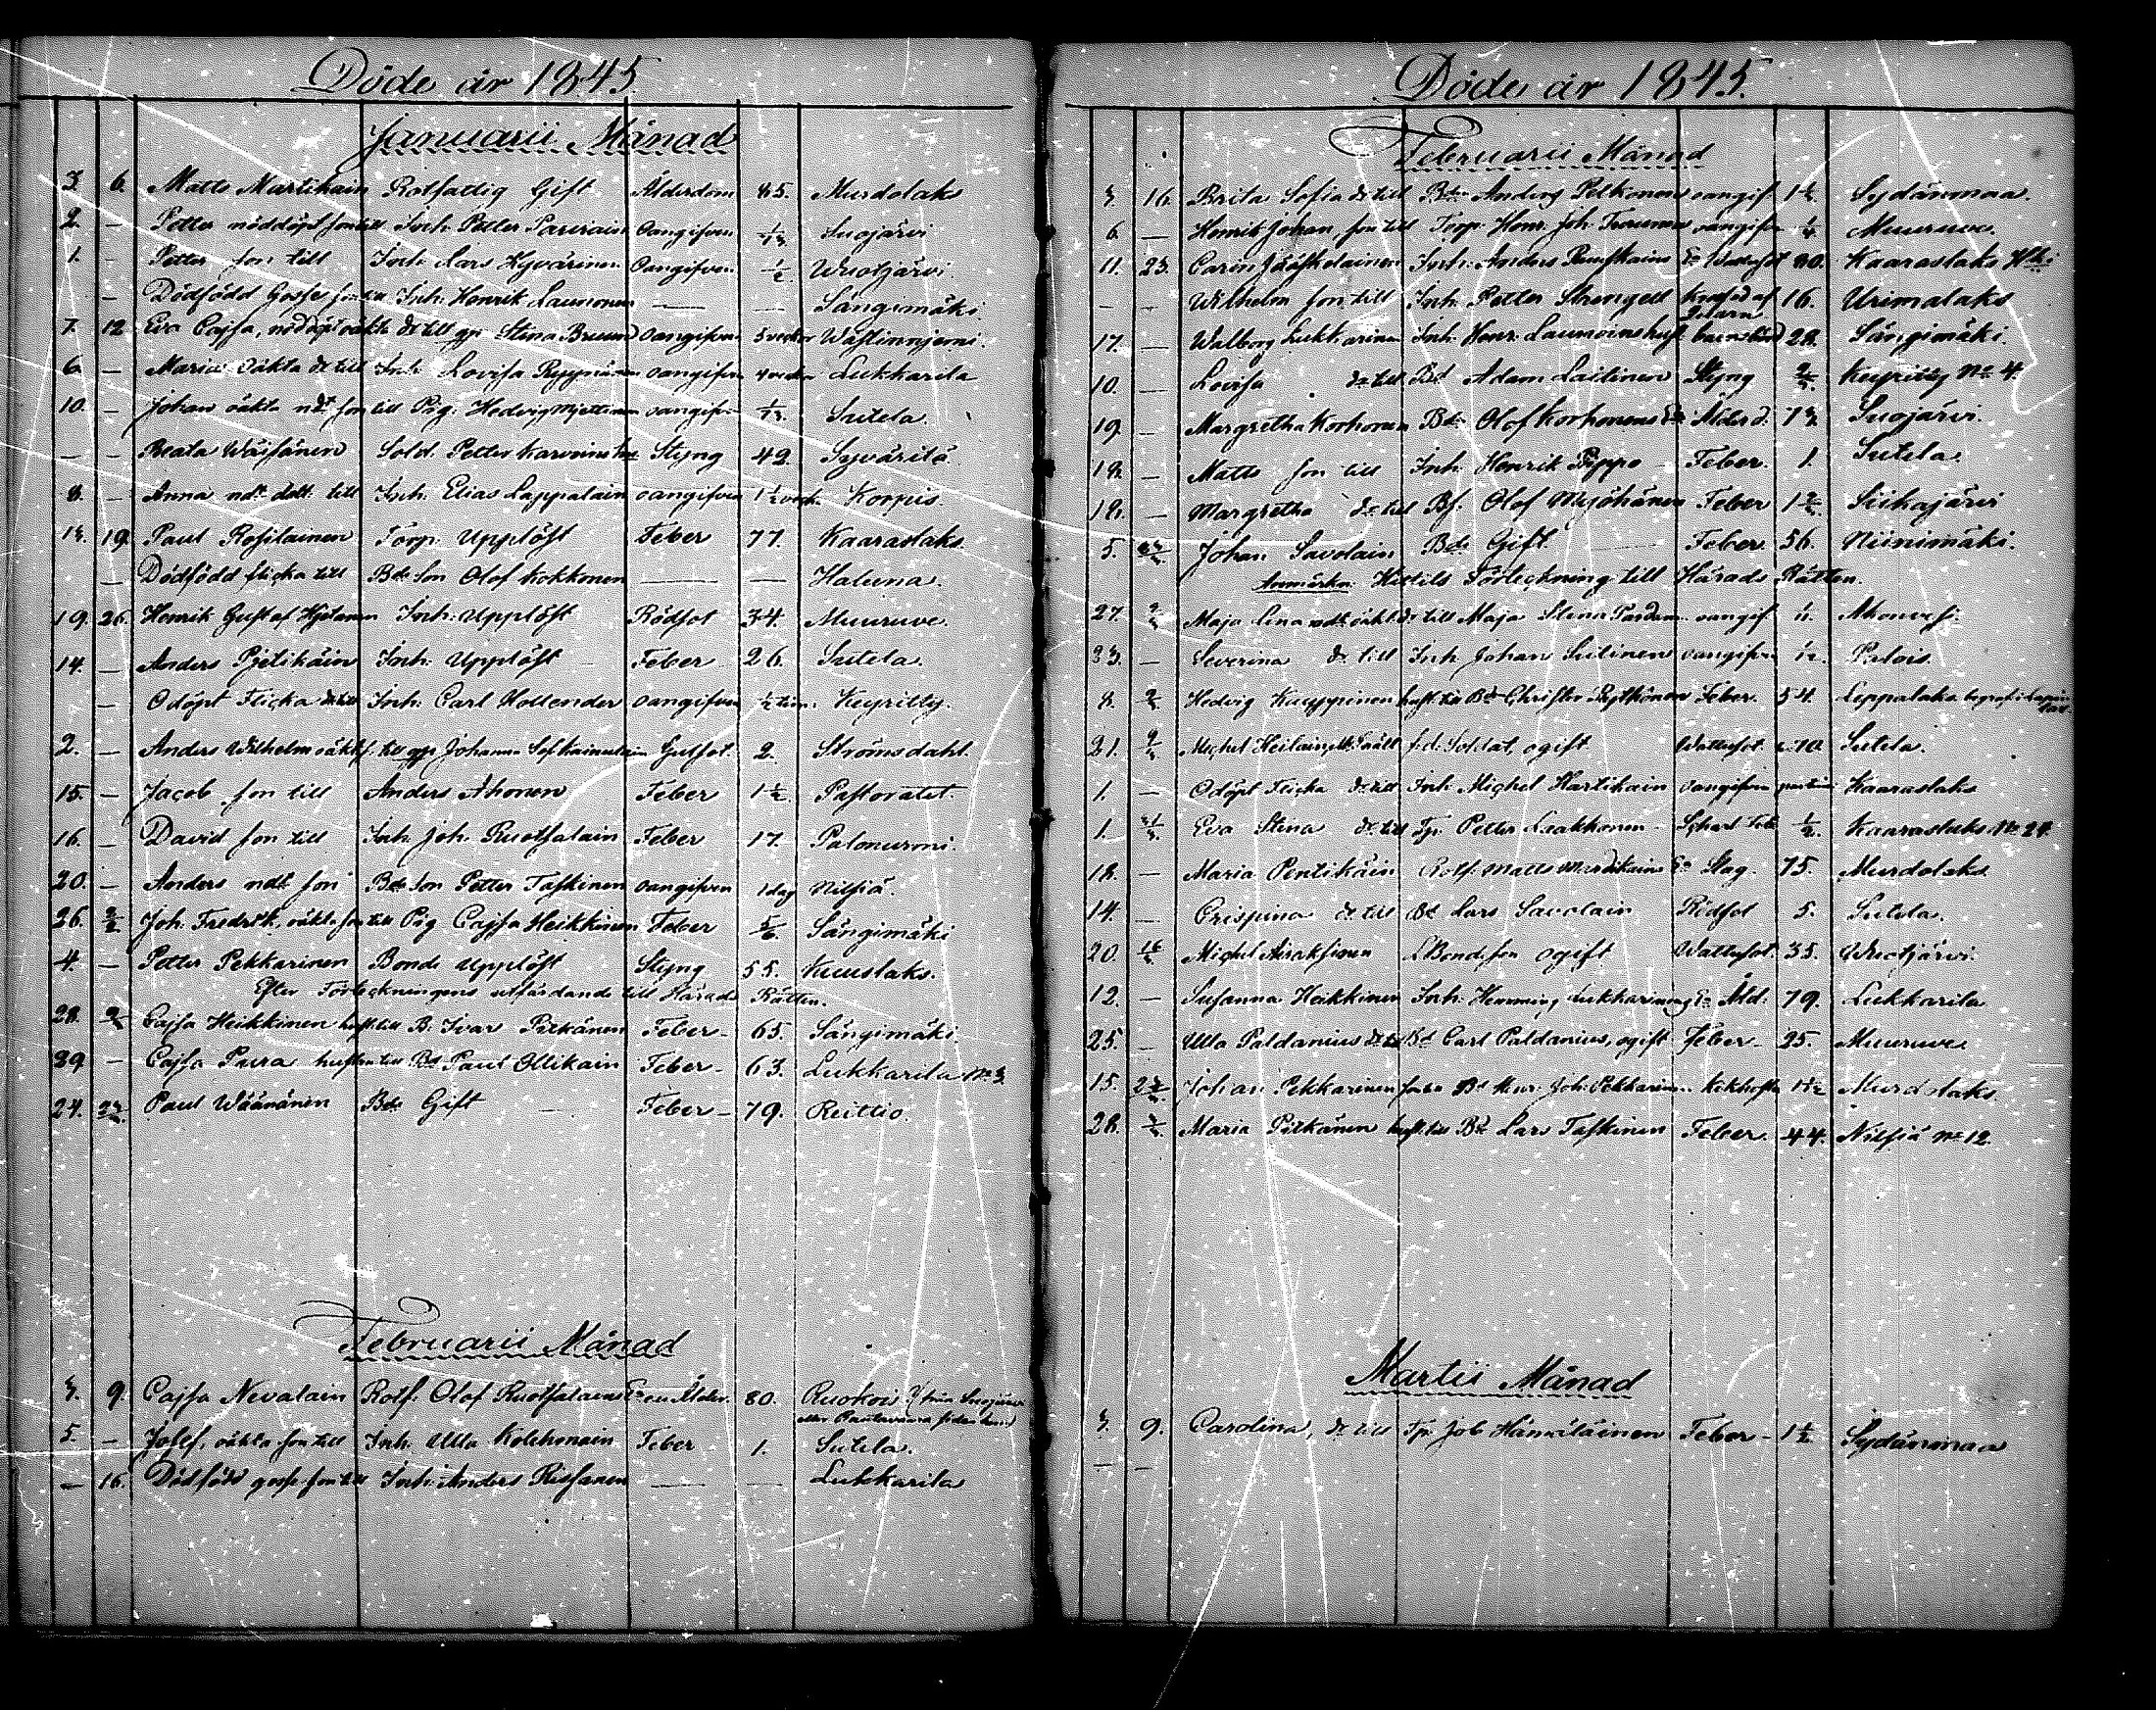 Döde år 1845.
Januarii Månad
3. 6. Matts Martikain Rotfattig Gift Ålderdom 85. Murdolaks
2. — Petter nöddöpt son till Inh: Petter Parviain Oangifven Suojärvi
1. — Petter son till Inh: Lars Hyvärinen Oangifven ½ Wuotjärvi
— Dödfödd Gosse son till Inh: Henrik Launonen — — Sängimäki
7. 12 Eva Cajsa, nöddöpt oäkta dr till pp: Stina Bruun oangifven 3 veckor Wästinnjemi.
6. — Maria oäkta dr till Inh: Lovisa Ryynänen oangifven 4 veckor Lukkarila
10. — Johan oäkta ndt son till Pig: Hedvig Mjettinen oangifven Sutela.
— — Beata Wäisänen Sold. Petter Karvinens Styng 42. Syvärilä
8. — Anna ndt dott: till Inh: Elias Lappalain oangifven 1½ veck. Korpis.
13. 19. Paul Rosilainen Torp: Upplöst Feber 77. Kaaraslaks.
— Dödfödd flicka till Bde Son Olof Kokkonen — — Haluna.
19. 26. Henrik Gustaf Hjelman Inh: Upplöst Rödsot 34. Muuruve.
14. — Anders Pjetikäin Inh: Upplöst Feber 26. Sutela.
— Odöpt Flicka dr till Inh: Carl Hollender oangifven ½ tim: Keyritty.
2. — Anders Wilhelm oäkta s. till pp Johanna Sof. Kainulain Gulsot. 2. Strömsdahl.
15. — Jacob son till Anders Ahonen Feber 1½. Pastoratet.
16. — David son till Inh: Joh: Ruotsalain Feber 17. Palonurmi.
20. — Anders ndt son Bde Son Petter Taskinen oangifven 1 dag Nilsiä.
26. 2/2 Joh: Fredrik, oäkta son till Pig Cajsa Heikkinen Feber 5/6. Sängimäki
4. — Petter Pekkarinen Bonde Upplöst Styng 55. Kuuslaks.
Efter Förteckningens utfärdande till Härads Rätten.
28. 2/2 Cajsa Heikkinen hust: till B: Ivar Pitkänen Feber - 65. Sängimäki.
29. — Cajsa Paura hustru till Bd Paul Ollikain Feber - 63. Lukkarila No 3.
24. Paul Wäänänen Bde Gift — Feber - 79. Reittio.
Februarii Månad
3. 9. Cajsa Nevalain Rotf: Olof Ruotsalains Ea Ålder. 80. Ruokoi från Suojärvi
eller Rautavaara sedan
5. — Josef, oäkta son till Inh: Ulla Kolehmain Feber 1. Sutela.
— 16. Dödfödd gosse son till Inh: Anders Rissanen — — Lukkarila
Döde år 1845.
Februarii Månad
3. 16. Brita Sofia dr till Bde Anders Pelkonen oangif. Sydänmaa.
6. — Henrik Johan son till Torp: Henr. Joh: Turunen oangifven ¼ Muuruve.
11. 23. Carin Jääskelainen Inh: Anders Ea Wattusot 80. Kaaraslaks
— Wilhelm son till Inh: Petter Strengell Krossad af 16. Urimalaks
17. — Walborg Lukkarinen Inh: Henr: Launoins hust: barnsbörd 28. Sängimäki.
10. — Lovisa dr till Bd Adam Laitinen Styng Keyritty No 4.
19. — Margretha Korhonen Bde Olof Korhonens Ea Ålderd. 73. Suojärvi.
18. — Matts son till Inh: Henrik Pippo Feber. 1. Sutela.
18. — Margretha dr till Bs. Olof Myöhänen Feber Siikajärvi
5. Johan Savolain Bde Gift. — Feber 56. Niinimäki.
Anmärkn: Hittils Förteckning till Härads Rätten.
27. Maja Lina ndt oäkt dr till Maja Stina oangif. Ahonvesi.
23. — Severina dr till Inh: Johan Sutinen oangifven ½. Palois.
8. Hedvig Kuyppinen hust: till Bde Christer Pöytkönen Feber. 54. Leppälaks
21. Michel Heilain f: d: Soldat, ogift Wattusot. 70. Sutela.
1. — Odöpt Flicka dr till Inh: Michel Hartikain oangifven Kaaraslaks
1. Eva Stina dr till Tp: Petter Laakkonen Scharl. feb ½. Kaaraslaks No 24.
18. — Maria Pentikäin Rotf: Matts Martikains Ea Slag. 75. Murdolaks.
14. — Crispina dr till Bd Lars Savolain Rödsot 5. Sutela.
20. Michel Airaksinen LBonde son ogift Wattusot. 35. Wuotjärvi.
12. — Susanna Heikkinen Inh: Hemming Lukkarinens Ea Åld: 79. Lukkarila
25. — Ulla Paldanius dr till Bd Carl Paldanius, ogift Feber - 25. Muuruve.
15. Johan Pekkarinen son till Bd Joh: Pekkarinen Kikhosta 1½ Murdolaks.
28. Maria Pitkänen hust: till Bd Lars Taskinen Feber 44. Nilsiä No 12.
Martii Månad
3. 9. Carolina, dr till Tp Job Hämäläinen Feber - 1½. Sydänmaa
— —